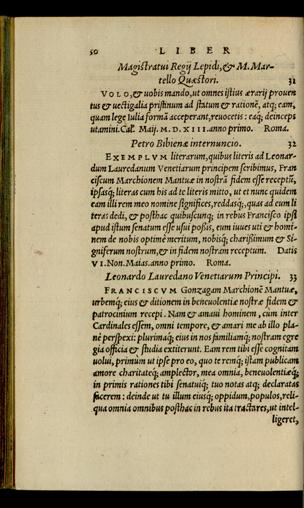 50 LIBER
Magistratui Regij Lepidi, & M. Mar-
tello Quæstori. 31
VOLO, & uobis mando, ut omnes istius ærarij prouen
tus & uectigalia pristinum ad statum & rationē, atq; eam,
quam lege Iulia formā acceperant, reuocetis: eaq; deinceps
utamini. Cal. Maij. M. D. XIII. anno primo. Roma.
Petro Bibienæ internuncio. 32
EXEMPLVM literarum, quibus literis ad Leonar-
dum Lauredanum Venetiarum principem scribimus, Fran
ciscum Marchionem Mantuæ in nostrā fidem esse receptū,
ipsasq; literas cum his ad te literis mitto, ut et nunc quidem
eam illi rem meo nomine significes, reddasq;, quas ad eum li
teras dedi, & posthac quibuscunq; in rebus Francisco ipsi
apud istum senatum esse usui possis, eum iuues uti & homi-
nem de nobis optime meritum, nobisq; charissimum & Si-
gniferum nostrum, & in fidem nostram receptum. Datis
VI. Non. Maias. anno primo. Roma.
Leonardo Lauredano Venetiarum Principi. 33
FRANCISCVM Gonzagam Marchionē Mantuæ,
urbemq; eius & ditionem in beneuolentiæ nostræ fidem &
patrocinium recepi. Nam & amaui hominem, cum inter
Cardinales essem, omni tempore, & amari me ab illo pla-
ne perspexi: plurimaq; eius in nos familiamq; nostram egre
gia officia & studia extiterunt. Eam rem tibi esse cognitam
uolui, primum ut ipse pro eo, quo te remq; istam publicam
amore charitateq; amplector, mea omnia, beneuolentiæq;
in primis rationes tibi senatuiq; tuo notas atq; declaratas
facerem: deinde ut tu illum eiusq; oppidum, populos, reli-
qua omnia omnibus posthac in rebus ita tractares, ut intel-
ligeret,